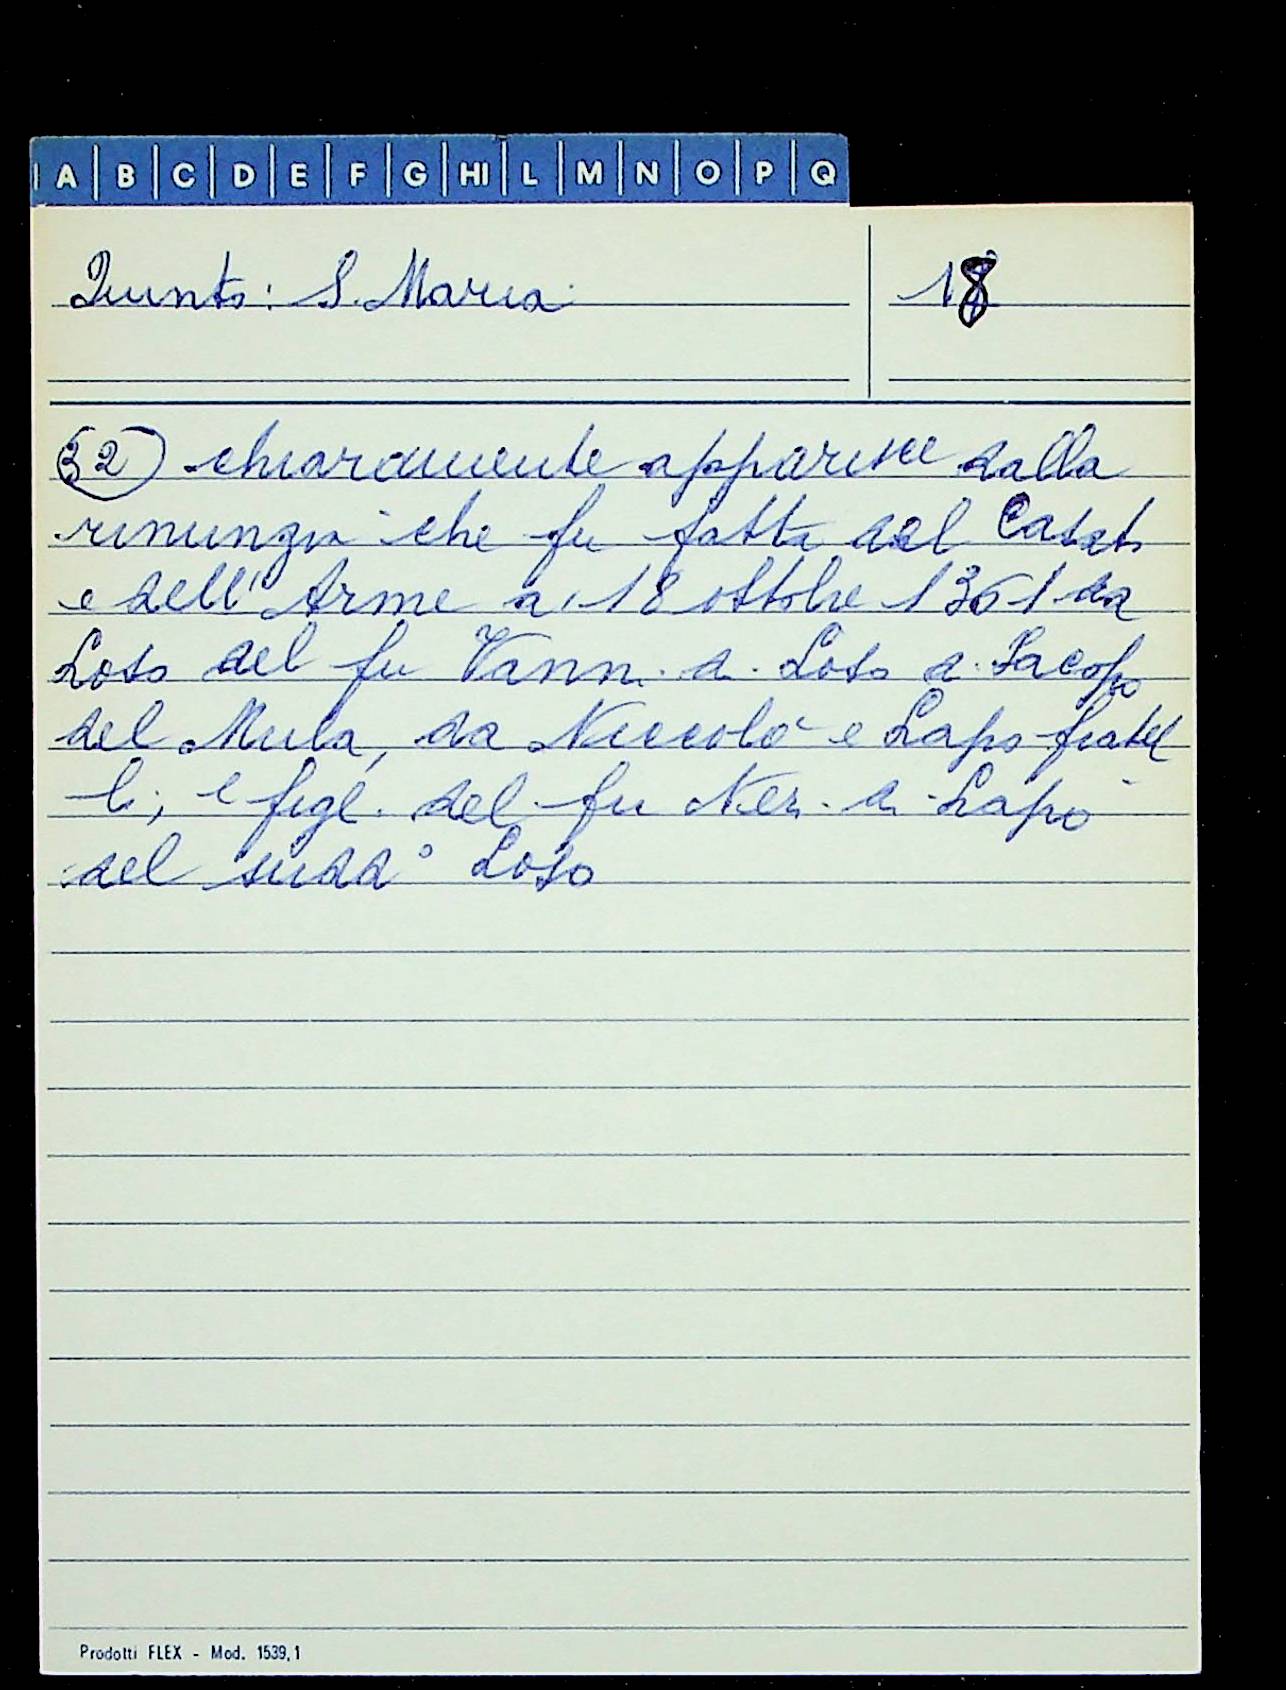 A B C D E F G HI L M N O P Q
Quinto: S. Maria
18
(32) chiaramente apparisce dalla
rinunzia che fu fatta del Casato
e dell'Arme a' 18 ottobre 1361 da
Loso del fu Vanni di Loso di Iacopo
del Mula, da Niccolò e Lapo fratel
li, e figl. del fu Neri di Lapo
del sudd° Loso
Prodotti FLEX - Mod. 1539,1